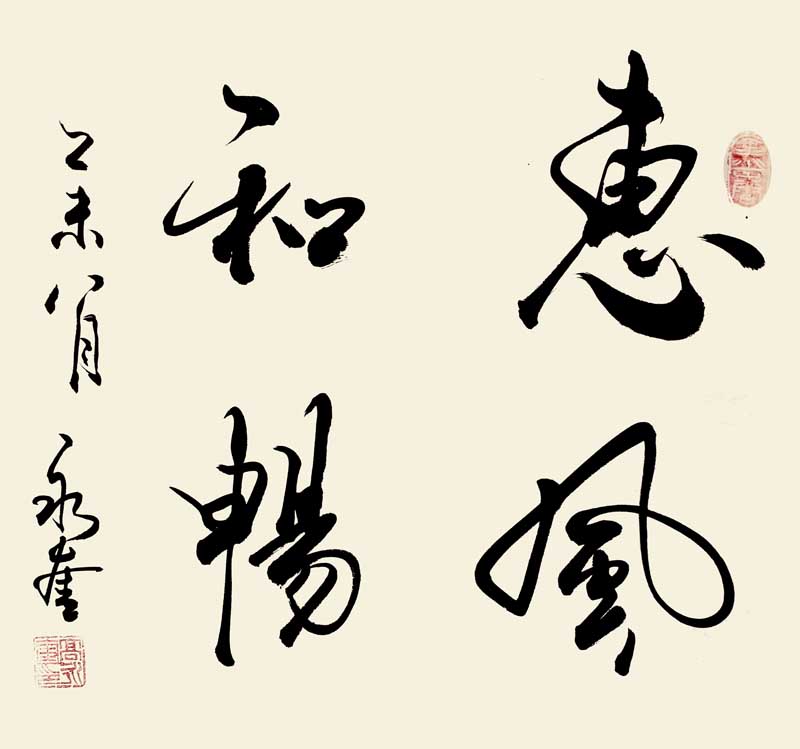 惠風
和暢
乙未八月 永奎